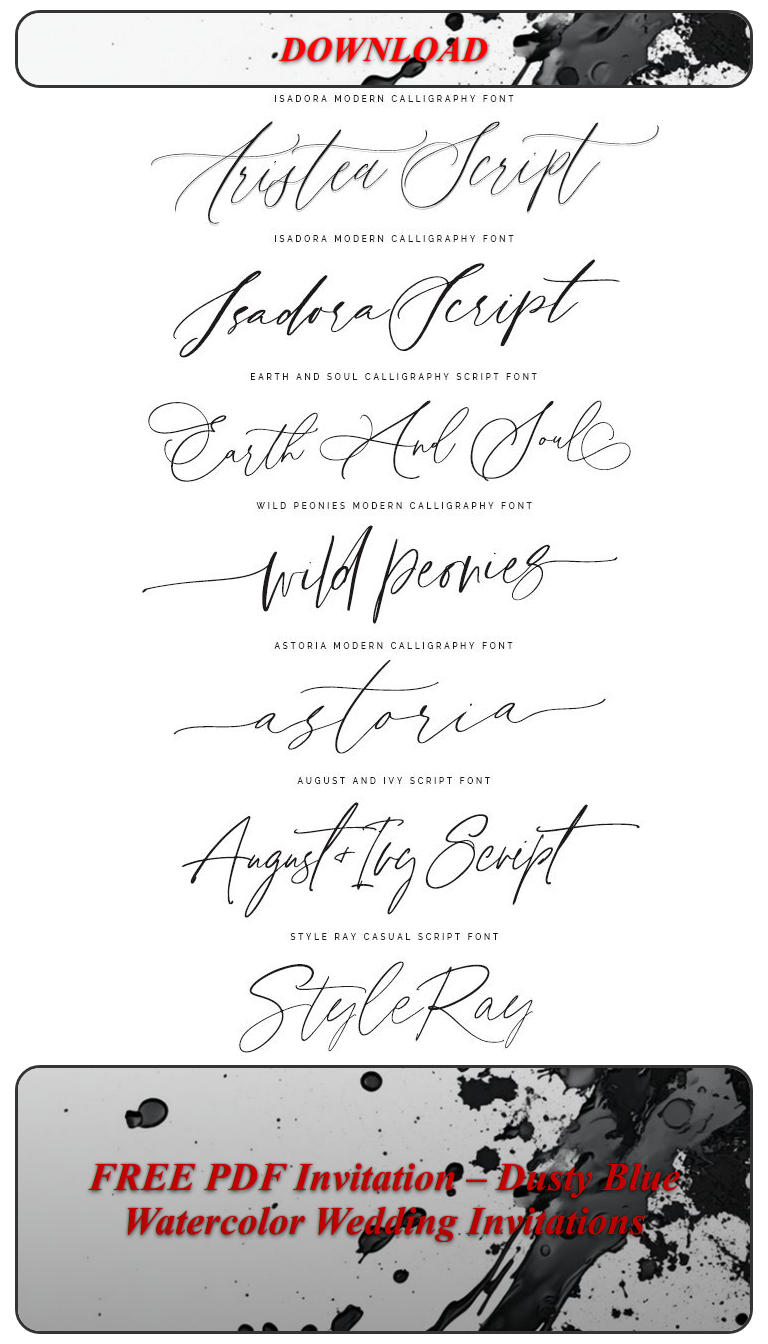 DOWNLOAD
ISADORA MODERN CALLIGRAPHY FONT
Aristea Script
ISADORA MODERN CALLIGRAPHY FONT
Isadora Script
EARTH AND SOUL CALLIGRAPHY SCRIPT FONT
Earth And Soul
WILD PEONIES MODERN CALLIGRAPHY FONT
wild peonies
ASTORIA MODERN CALLIGRAPHY FONT
astoria
AUGUST AND IVY SCRIPT FONT
August + Ivy Script
STYLE RAY CASUAL SCRIPT FONT
Style Ray
FREE PDF Invitation – Dusty Blue
Watercolor Wedding Invitations